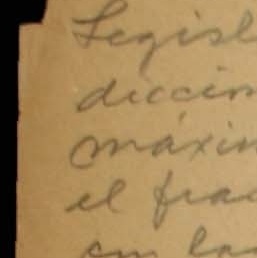 Legisl
diccion
máxim
el frac
en la